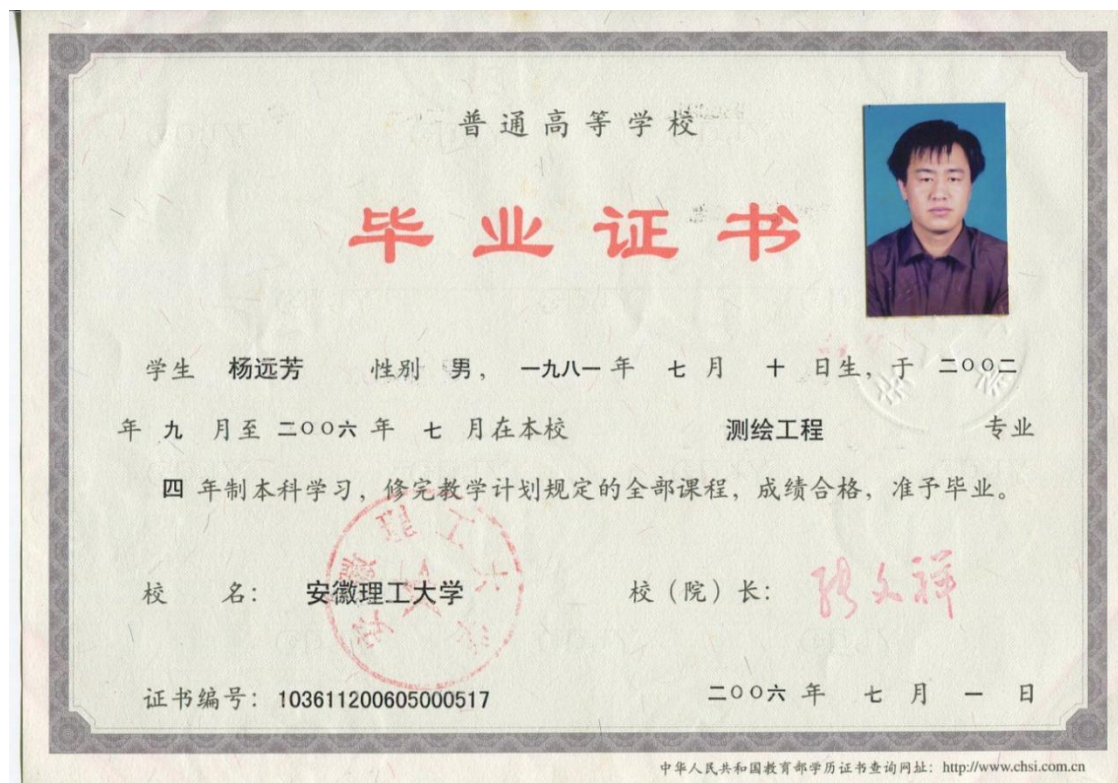 普通高等学校
毕业证书
学生 杨远芳 性别 男，一九八一年 七 月 十 日生，于 二〇〇二
年 九 月至 二〇〇六 年 七 月在本校 测绘工程 专业
四 年制本科学习，修完教学计划规定的全部课程，成绩合格，准予毕业。
安徽理工大学
校 名： 安徽理工大学 校（院）长：
证书编号：103611200605000517 二〇〇六 年 七 月 一 日
中华人民共和国教育部学历证书查询网址：http://www.chsi.com.cn